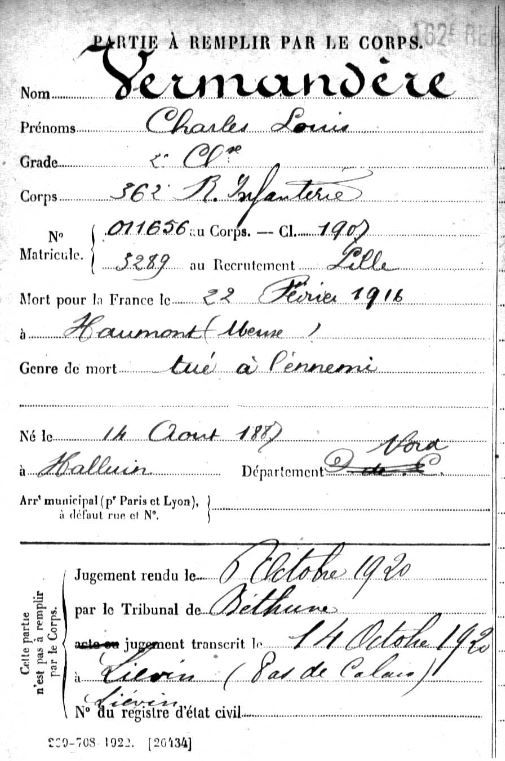 162e REG
PARTIE À REMPLIR PAR LE CORPS.
Nom Vermandère
Prénoms Charles Louis
Grade 2e Clse
Corps 362 R. Infanterie
No Matricule. 011656 au Corps. — Cl. 1907
3289 au Recrutement Lille
Mort pour la France le 22 Février 1916
à Haumont (Meuse)
Genre de mort tué à l'ennemi
Né le 14 Aout 1887
à Halluin Département Nord
Arrt municipal (pr Paris et Lyon),
à défaut rue et No.
Cette partie
n'est pas à remplir
par le Corps.
Jugement rendu le Octobre 1920
par le Tribunal de Béthune
acte ou jugement transcrit le 14 Octobre 1920
à Liévin (Pas de Calais)
Liévin
No du registre d'état civil
[26434]